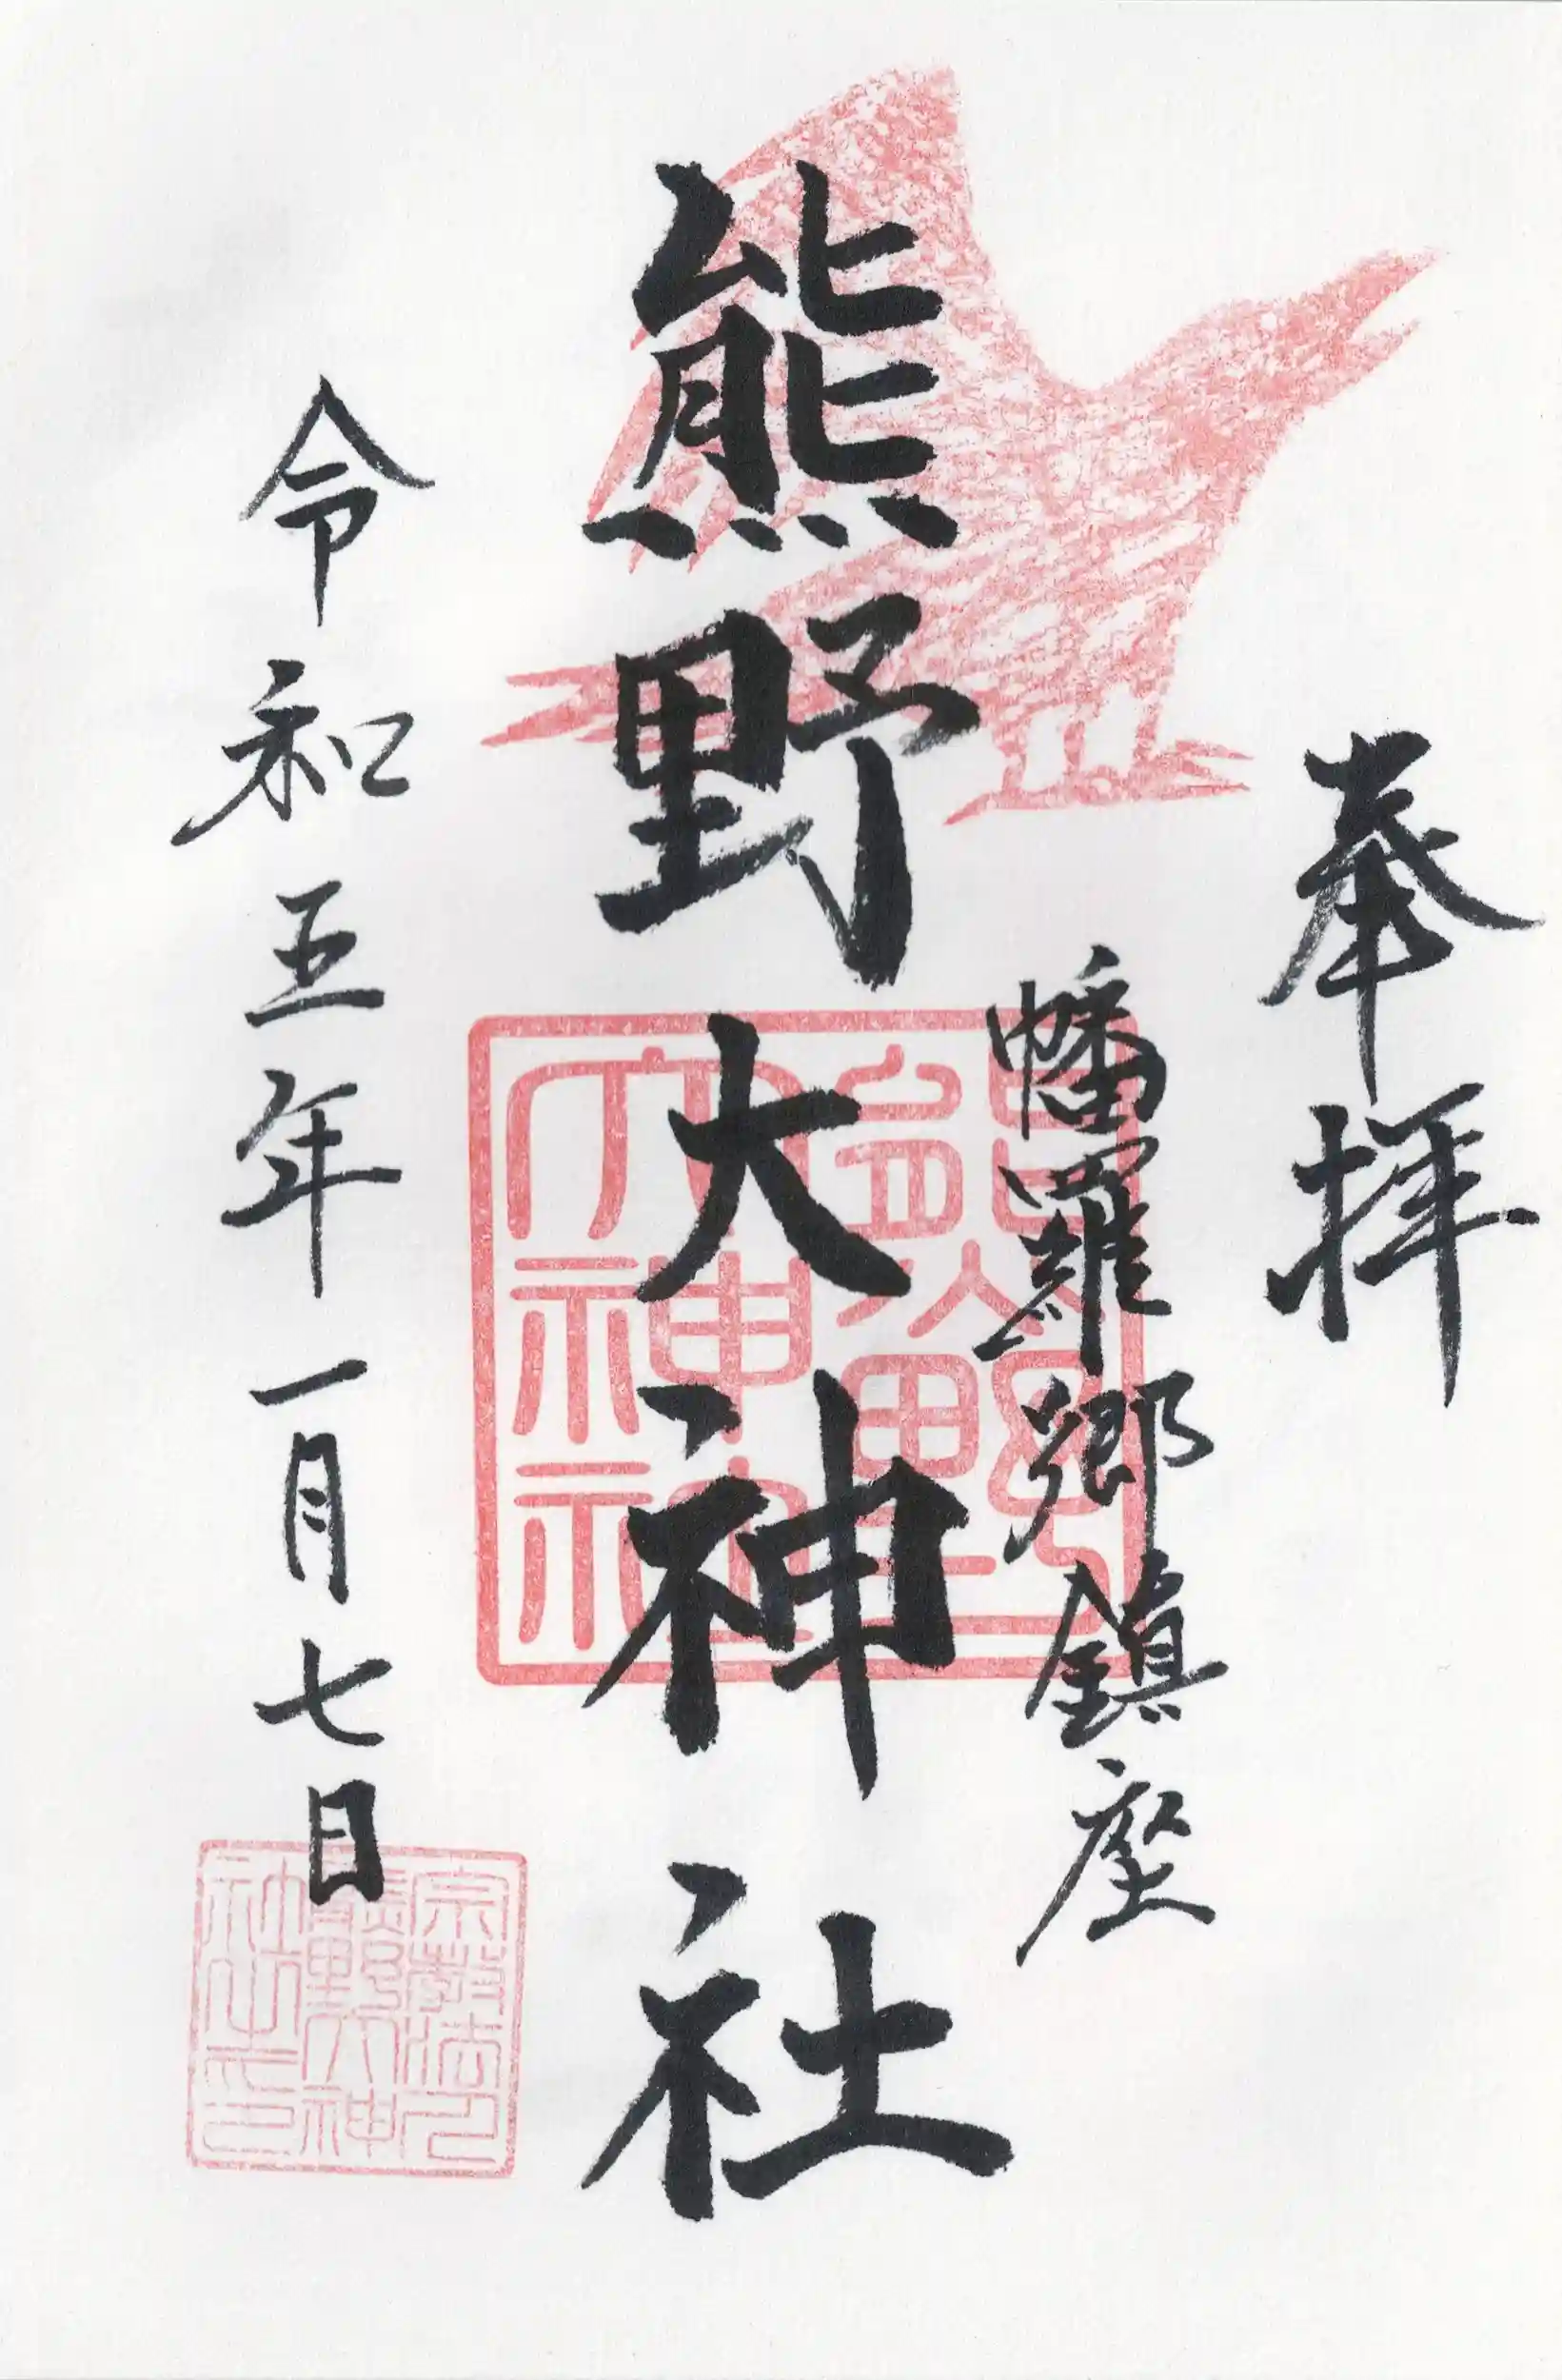 奉拝
幡羅郷鎮座
熊野大神社
令和五年一月七日
熊野
大神社
宗教法人
熊野大神
社之印